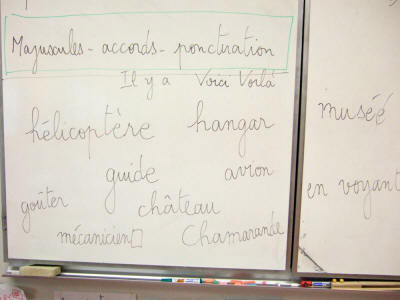 Majuscules - accords - ponctuation
Il y a Voici Voilà
hélicoptère hangar
guide avion
goûter château
mécanicien Chamarande
muséé
en voyant